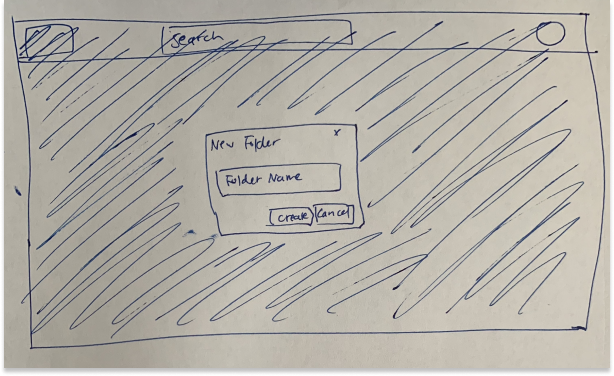 Search
New Folder x
Folder Name
Create Cancel